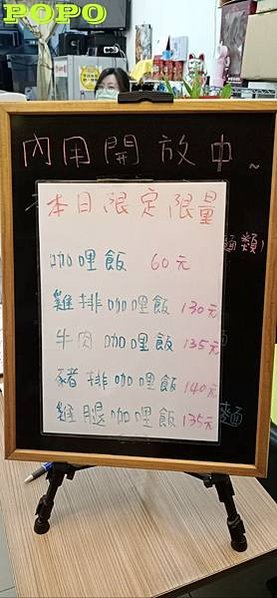 POPO
內用開放中~
本日限定限量
麵類)
咖哩飯 60元
雞排咖哩飯 130元
牛肉咖哩飯 135元
豬排咖哩飯 140元
雞腿咖哩飯 135元
麵